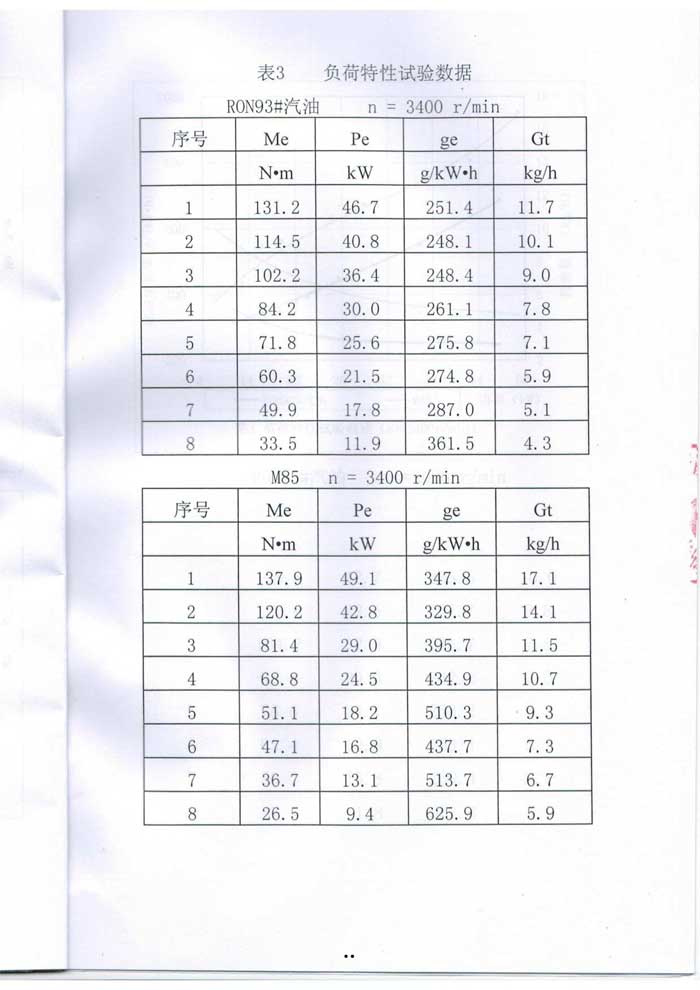 表3 负荷特性试验数据
RON93#汽油 n = 3400 r/min
序号 Me Pe ge Gt
N•m kW g/kW•h kg/h
1 131.2 46.7 251.4 11.7
2 114.5 40.8 248.1 10.1
3 102.2 36.4 248.4 9.0
4 84.2 30.0 261.1 7.8
5 71.8 25.6 275.8 7.1
6 60.3 21.5 274.8 5.9
7 49.9 17.8 287.0 5.1
8 33.5 11.9 361.5 4.3
M85 n = 3400 r/min
序号 Me Pe ge Gt
N•m kW g/kW•h kg/h
1 137.9 49.1 347.8 17.1
2 120.2 42.8 329.8 14.1
3 81.4 29.0 395.7 11.5
4 68.8 24.5 434.9 10.7
5 51.1 18.2 510.3 9.3
6 47.1 16.8 437.7 7.3
7 36.7 13.1 513.7 6.7
8 26.5 9.4 625.9 5.9